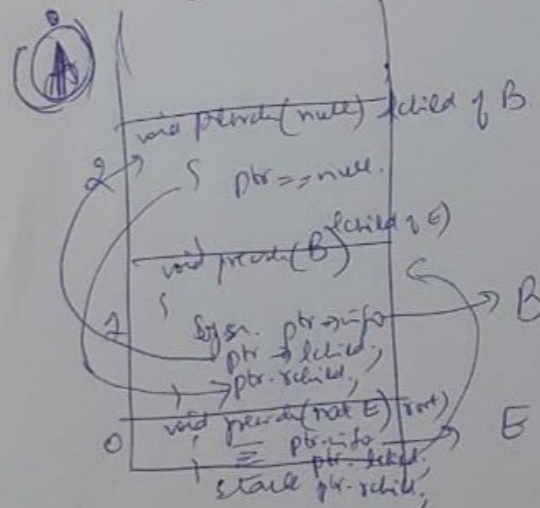 void preorder(null) lchild of B
2
{ ptr == null.
void preorder(B) (lchild of E)
{
1
ptr->info B
ptr->lchild,
ptr->rchild,
0 void preorder(root E) root)
ptr->info E
ptr->lchild,
stack ptr->rchild,